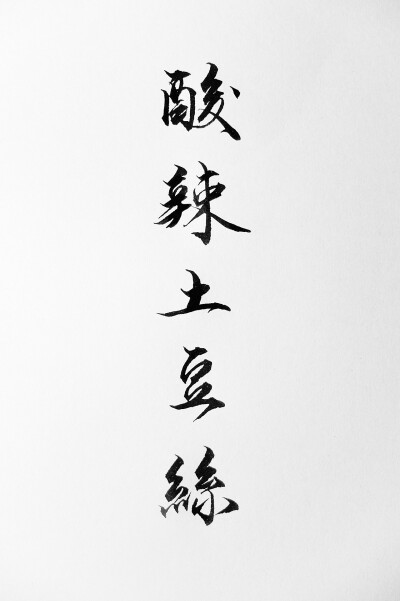 酸辣土豆絲